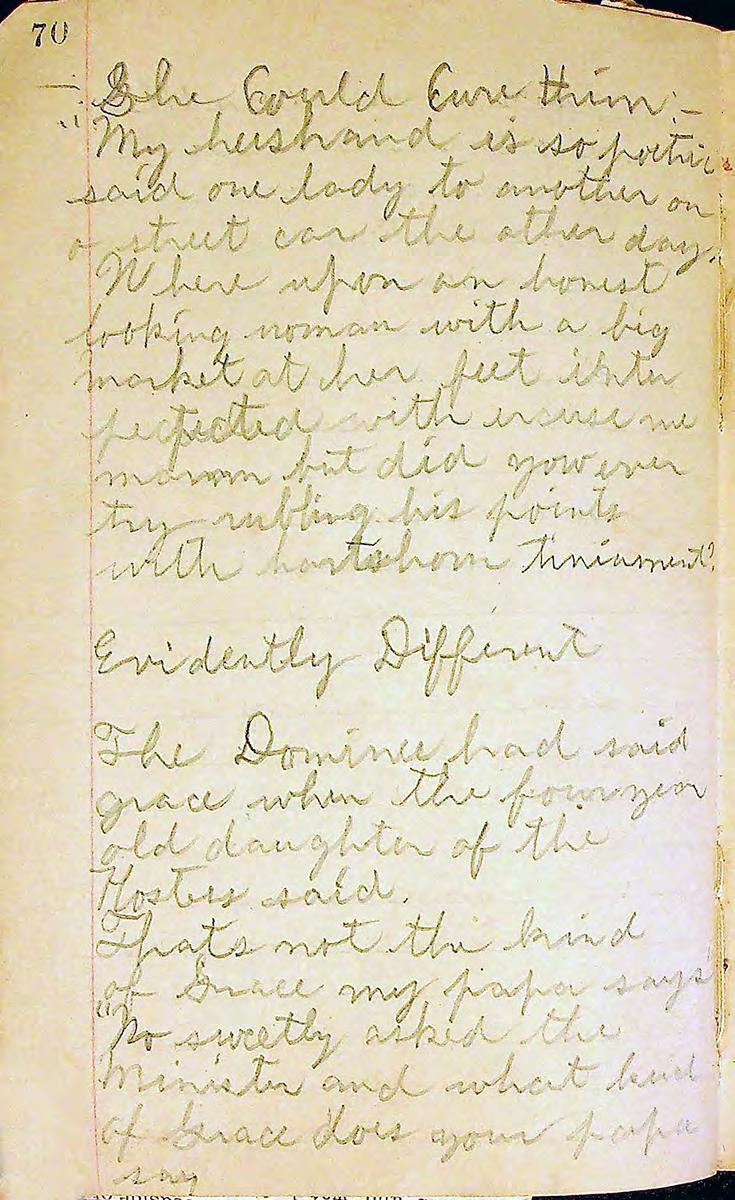 70
She Could Cure Him:-
"My husband is so poetic
said one lady to another on
a street car the other day.
Where upon an honest
looking woman with a big
market at her feet inter
pected with excuse me
mamm but did you ever
try rubbing his points
with hartshorn liniament?
Evidently Different
The Dominee had said
grace when the four year
old daughter of the
Hostess said.
Thats not the kind
of Grace my papa says
"No sweetly asked the
Minister and what kind
of Grace does your papa
say